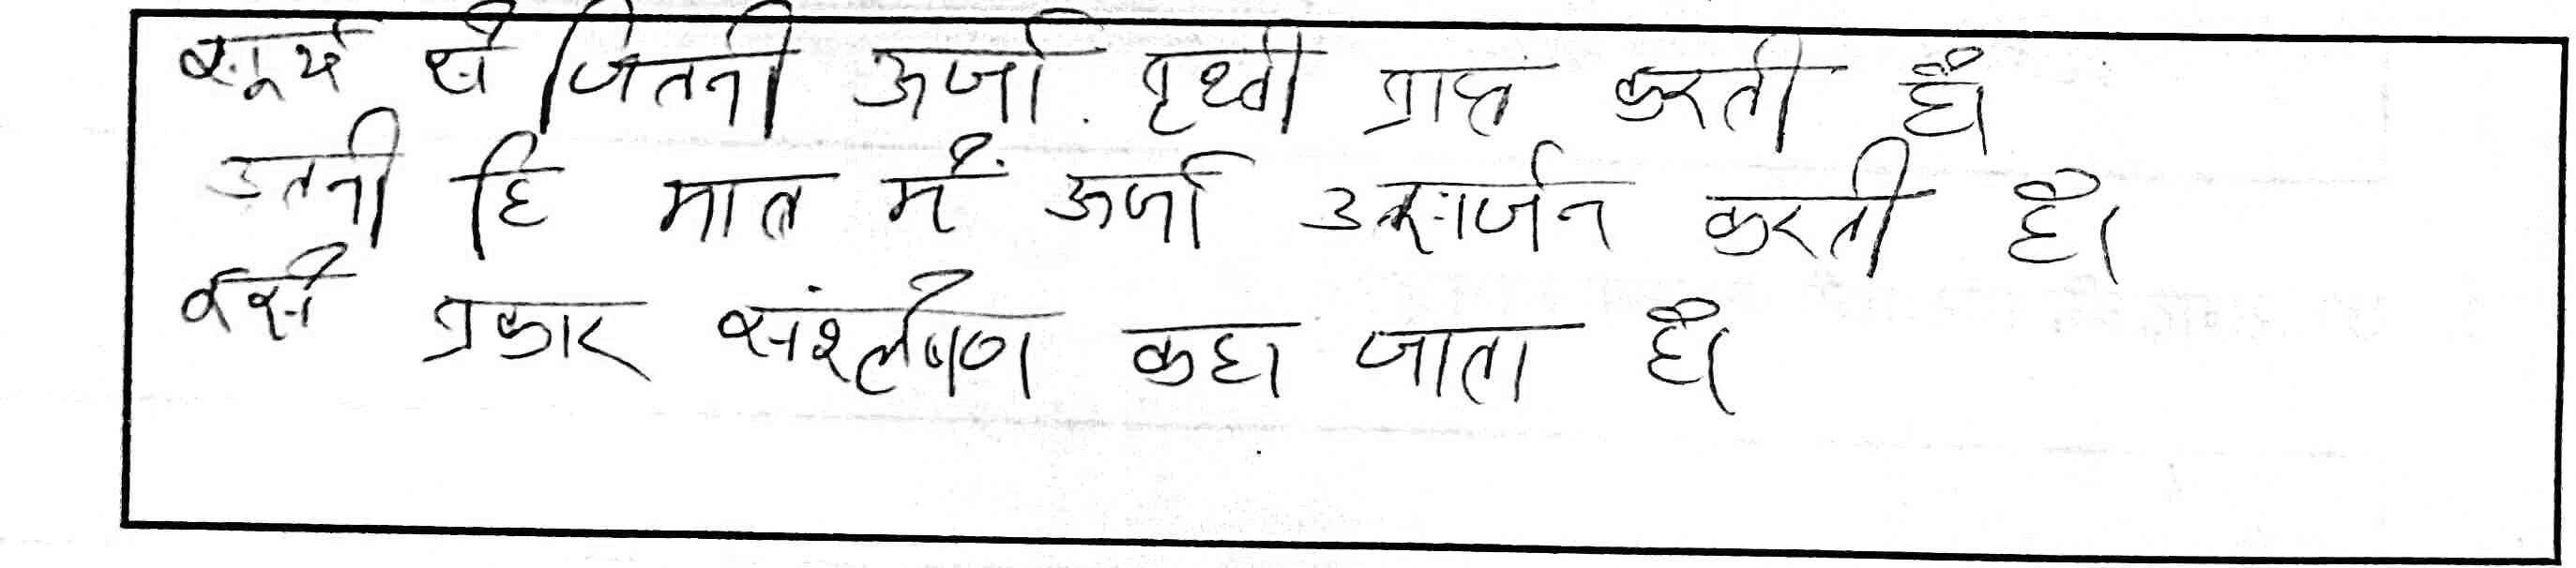 सूर्य से जितनी ऊर्जा पृथ्वी प्राप्त करती है
उतनी हि मात्र में ऊर्जा उत्सर्जन करती है।
इसी प्रकार संश्लेषण कहा जाता है।